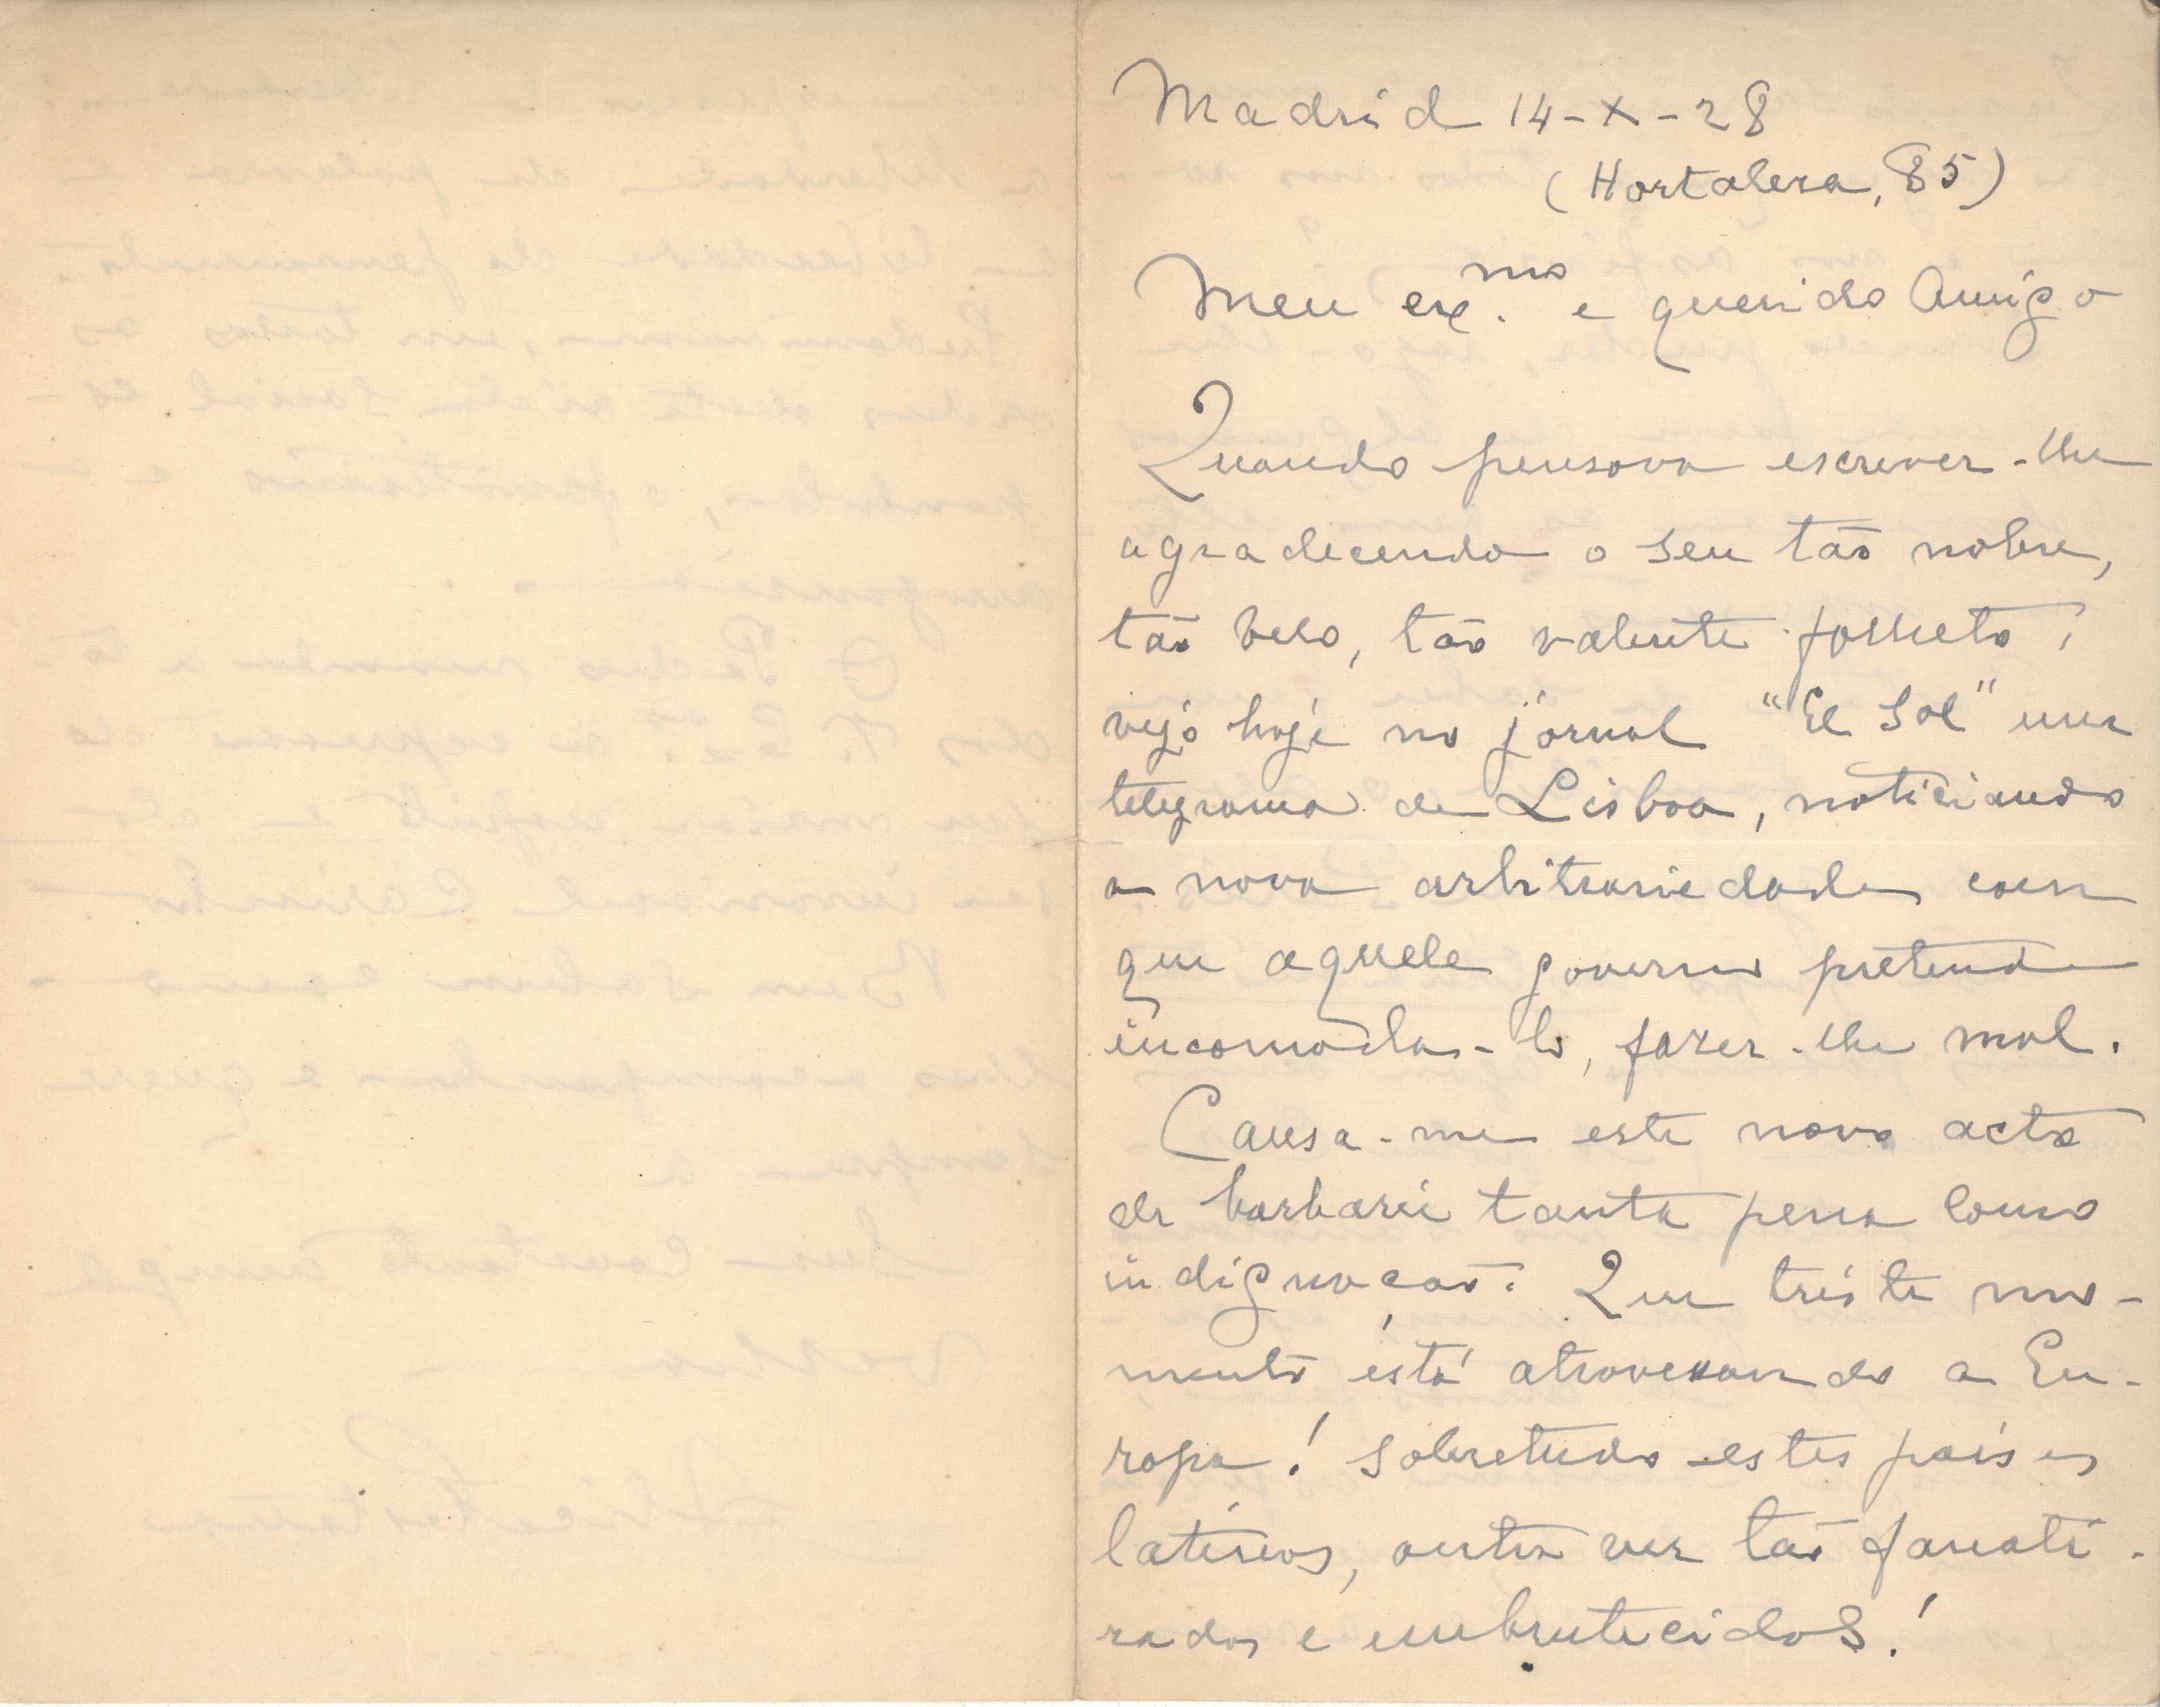 Madrid 14-X-28
(Hortalesa, 85)
Meu ex.mo e querido Amigo
Quando pensava escrever-lhe
agradecendo o seu tão nobre,
tão belo, tão valente folheto,
vejo hoje no jornal "El Sol" um
telegrama de Lisboa, noticiando
a nova arbitrariedade com
que aquele governo pretende
incomoda-lo, fazer-lhe mal.
Causa-me este novo acto
de barbarie tanta pena como
indignação. Que triste mo-
mento está atravessando a Eu-
ropa! Sobretudo estes países
latinos, outra vez tão fanati-
zados e embrutecidos!